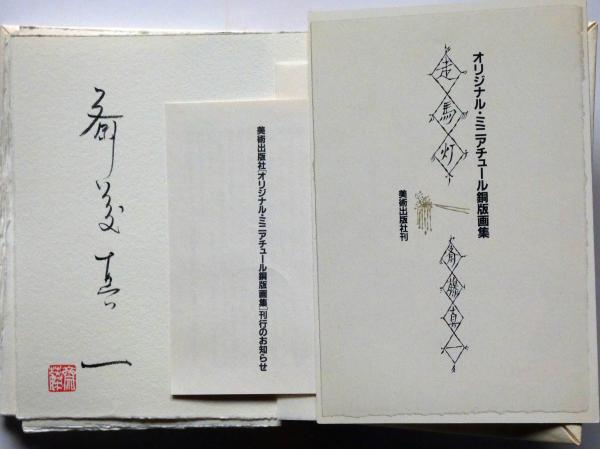 オリジナル・ミニアチュール銅版画集
走馬灯
斎藤真一
美術出版社刊
美術出版社「オリジナル・ミニアチュール銅版画集」刊行のお知らせ
斎藤真一